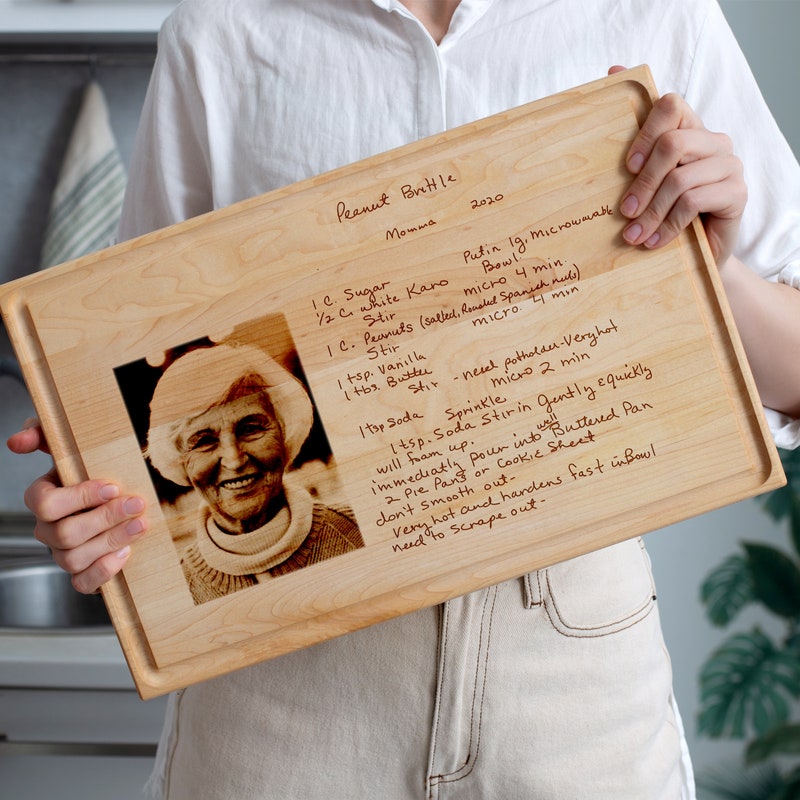 Peanut Brittle
Momma 2020
1 C. Sugar Put in lg, microwavable
Bowl.
1/2 C. white Karo micro 4 min.
Stir
1 C. Peanuts (salted, Roasted Spanish nuts)
Stir micro. 4 min
1 tsp. Vanilla
1 tbs. Butter
Stir - need potholder-Very hot
micro 2 min
1 tsp Soda Sprinkle
1 tsp. Soda Stir in Gently & quickly
will foam up.
immediatly pour into well Buttered Pan
2 Pie Pans or Cookie Sheet
don't smooth out-
Very hot and hardens fast in Bowl
need to scrape out-